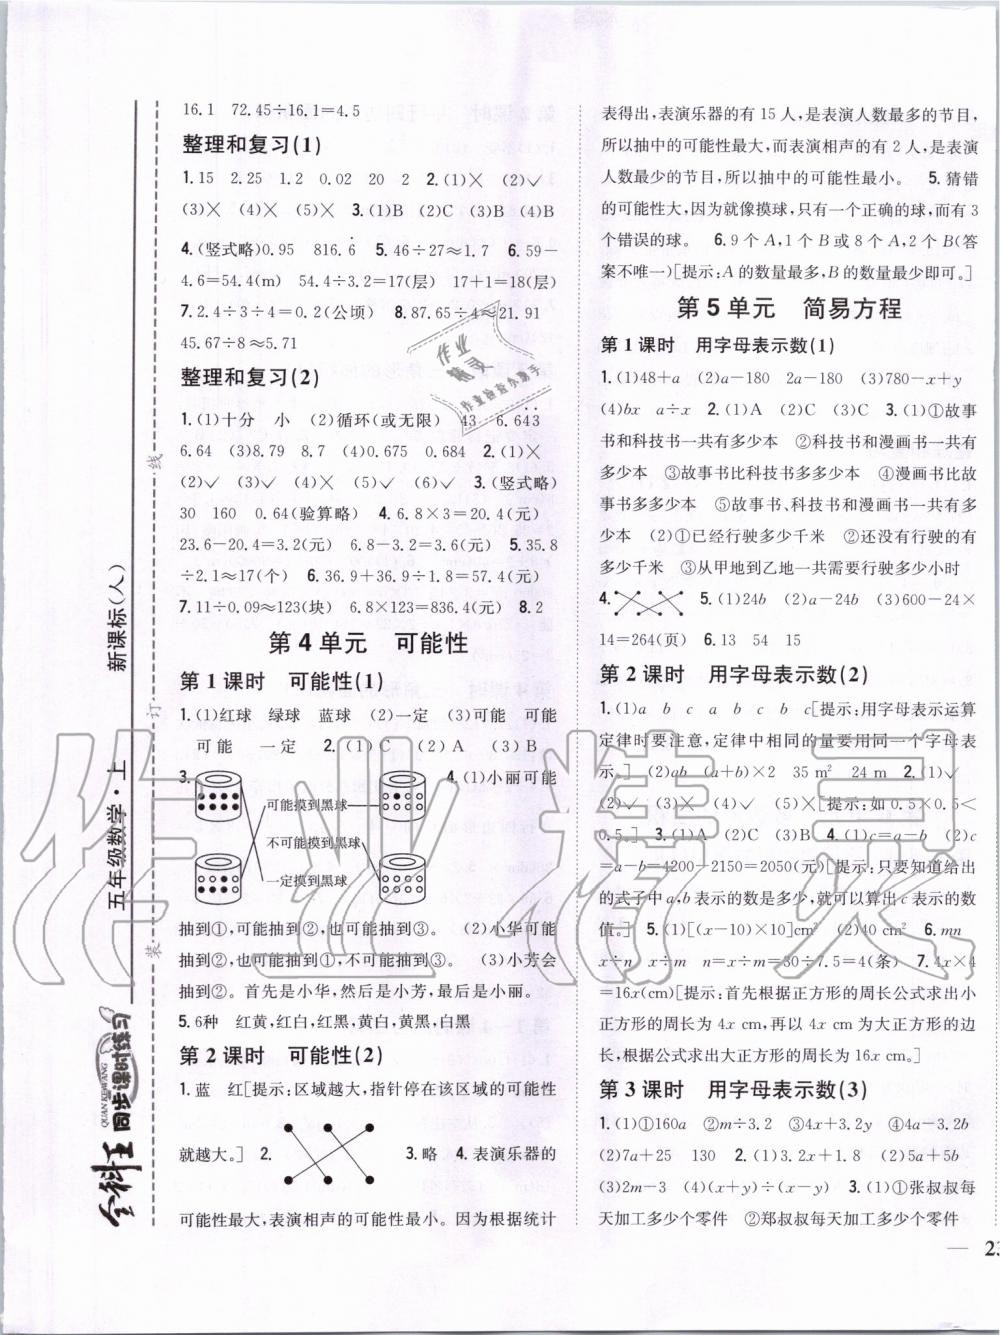 16.1 72.45÷16.1=4.5
整理和复习(1)
1.15 2.25 1.2 0.02 20 2 2.(1)× (2)✓
(3)× (4)× (5)× 3.(1)B (2)C (3)B (4)B
4.(竖式略)0.95 816.6̇ 5.46÷27≈1.7 6.59-
4.6=54.4(m) 54.4÷3.2=17(层) 17+1=18(层)
7.2.4÷3÷4=0.2(公顷) 8.87.65÷4≈21.91
45.67÷8≈5.71
整理和复习(2)
1.(1)十分 小 (2)循环(或无限) 43 6.64̇3̇
6.64 (3)8.79 8.7 (4)0.675 0.684 2.(1)×
(2)✓ (3)✓ (4)× (5)✓ (6)✓ 3.(竖式略)
30 160 0.64(验算略) 4.6.8×3=20.4(元)
23.6-20.4=3.2(元) 6.8-3.2=3.6(元) 5.35.8
÷2.1≈17(个) 6.36.9+36.9÷1.8=57.4(元)
7.11÷0.09≈123(块) 6.8×123=836.4(元) 8.2
第4单元 可能性
第1课时 可能性(1)
1.(1)红球 绿球 蓝球 (2)一定 (3)可能 可能
可能 一定 2.(1)C (2)A (3)B
3.
可能摸到黑球
不可能摸到黑球
一定摸到黑球
4.(1)小丽可能
抽到①,可能抽到②,也可能抽到③。 (2)小华可能
抽到②,也可能抽到①,不可能抽到③。 (3)小芳会
抽到②。首先是小华,然后是小芳,最后是小丽。
5.6种 红黄,红白,红黑,黄白,黄黑,白黑
第2课时 可能性(2)
1.蓝 红[提示:区域越大,指针停在该区域的可能性
就越大。] 2. 3.略 4.表演乐器的
可能性最大,表演相声的可能性最小。因为根据统计
表得出,表演乐器的有15人,是表演人数最多的节目,
所以抽中的可能性最大;而表演相声的有2人,是表演
人数最少的节目,所以抽中的可能性最小。 5.猜错
的可能性大,因为就像摸球,只有一个正确的球,而有3
个错误的球。 6.9个A,1个B或8个A,2个B(答
案不唯一)[提示:A的数量最多,B的数量最少即可。]
第5单元 简易方程
第1课时 用字母表示数(1)
1.(1)48+a (2)a-180 2a-180 (3)780-x+y
(4)bx a÷x 2.(1)A (2)C (3)C 3.(1)①故事
书和科技书一共有多少本 ②科技书和漫画书一共有
多少本 ③故事书比科技书多多少本 ④漫画书比故
事书多多少本 ⑤故事书、科技书和漫画书一共有多
少本 (2)①已经行驶多少千米 ②还没有行驶的有
多少千米 ③从甲地到乙地一共需要行驶多少小时
4. 5.(1)24b (2)a-24b (3)600-24×
14=264(页) 6.13 54 15
第2课时 用字母表示数(2)
1.(1)a b c a b c b c[提示:用字母表示运算
定律时要注意,定律中相同的量要用同一个字母表
示。] (2)ab (a+b)×2 35 m² 24 m 2.(1)✓
(2)✓ (3)× (4)✓ (5)×[提示:如0.5×0.5<
0.5] 3.(1)A (2)C (3)B 4.(1)c=a-b (2)c
=a-b=4200-2150=2050(元)[提示:只要知道给出
的式子中a,b表示的数是多少,就可以算出c表示的数
值。] 5.(1)[(x-10)×10]cm² (2)40 cm² 6.mn
x÷n x÷m n=x÷m=30÷7.5=4(条) 7.4x×4
=16x(cm)[提示:首先根据正方形的周长公式求出小
正方形的周长为4x cm,再以4x cm为大正方形的边
长,根据公式求出大正方形的周长为16x cm。]
第3课时 用字母表示数(3)
1.(1)①160a ②m÷3.2 ③4x+3.2y ④4a-3.2b
(2)7a+25 130 2.(1)3.2x+1.8 (2)5a+5b
(3)2m-3 (4)(x+y)÷(a-b) 3.(1)①张叔叔每
天加工多少个零件 ②郑叔叔每天加工多少个零件
— 23
新课标(人)
五年级数学·上
全科王
同步课时练习
QUAN KE WANG
装 订 线
作业精灵
作业精灵